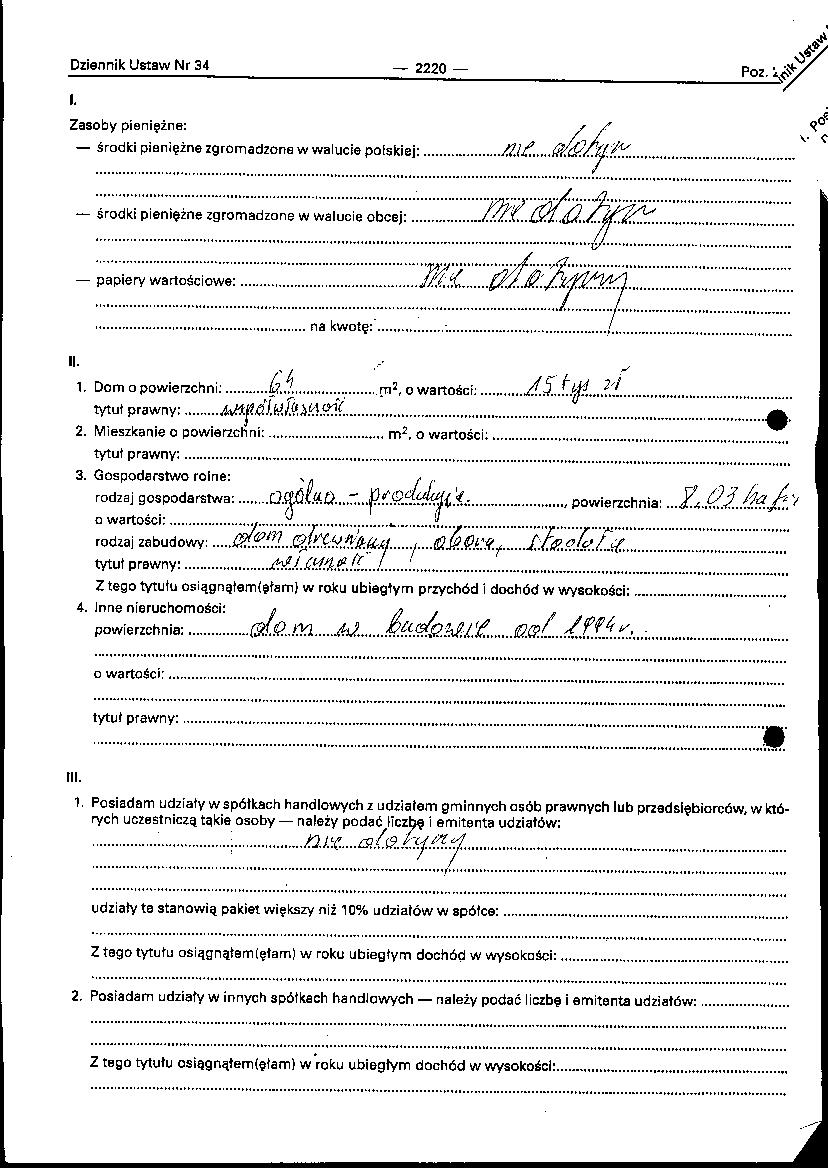 Dziennik Ustaw Nr 34 — 2220 — Poz.
nik Ustaw
I.
Zasoby pieniężne:
— środki pieniężne zgromadzone w walucie polskiej: nie dotyczy
— środki pieniężne zgromadzone w walucie obcej: nie dotyczy
— papiery wartościowe: nie dotyczy
na kwotę:
II.
1. Dom o powierzchni: 64 m², o wartości: 15 tys zł
tytuł prawny: współwłasność
2. Mieszkanie o powierzchni: m², o wartości:
tytuł prawny:
3. Gospodarstwo rolne:
rodzaj gospodarstwa: ogólno - produkcyjne, powierzchnia: 8,03 ha
o wartości:
rodzaj zabudowy: dom drewniany, obora, stodoła
tytuł prawny: własność
Z tego tytułu osiągnąłem(ęłam) w roku ubiegłym przychód i dochód w wysokości:
4. Inne nieruchomości:
powierzchnia: dom w budowie od 1994 r.
o wartości:
tytuł prawny:
III.
1. Posiadam udziały w spółkach handlowych z udziałem gminnych osób prawnych lub przedsiębiorców, w któ-
rych uczestniczą takie osoby — należy podać liczbę i emitenta udziałów:
nie dotyczy
udziały te stanowią pakiet większy niż 10% udziałów w spółce:
Z tego tytułu osiągnąłem(ęłam) w roku ubiegłym dochód w wysokości:
2. Posiadam udziały w innych spółkach handlowych — należy podać liczbę i emitenta udziałów:
Z tego tytułu osiągnąłem(ęłam) w roku ubiegłym dochód w wysokości: